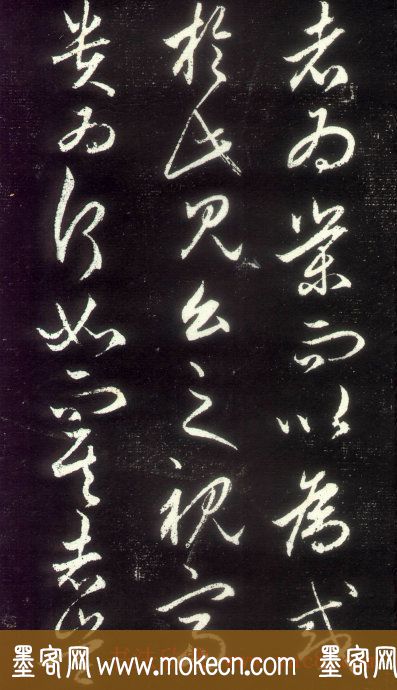 者為業而以為
於此見公之視富
貴為何如而其者
墨客网 www.mokecn.com 墨客网